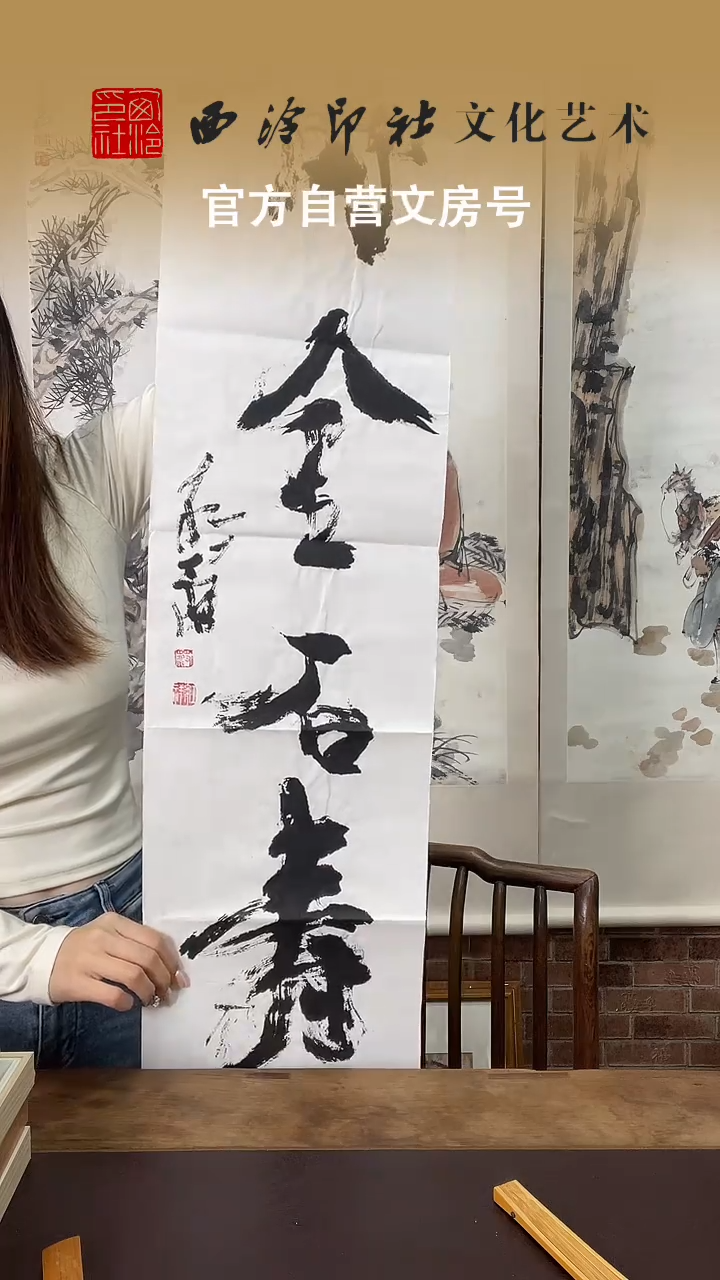 西泠印社
西泠印社文化艺术
官方自营文房号
金石寿